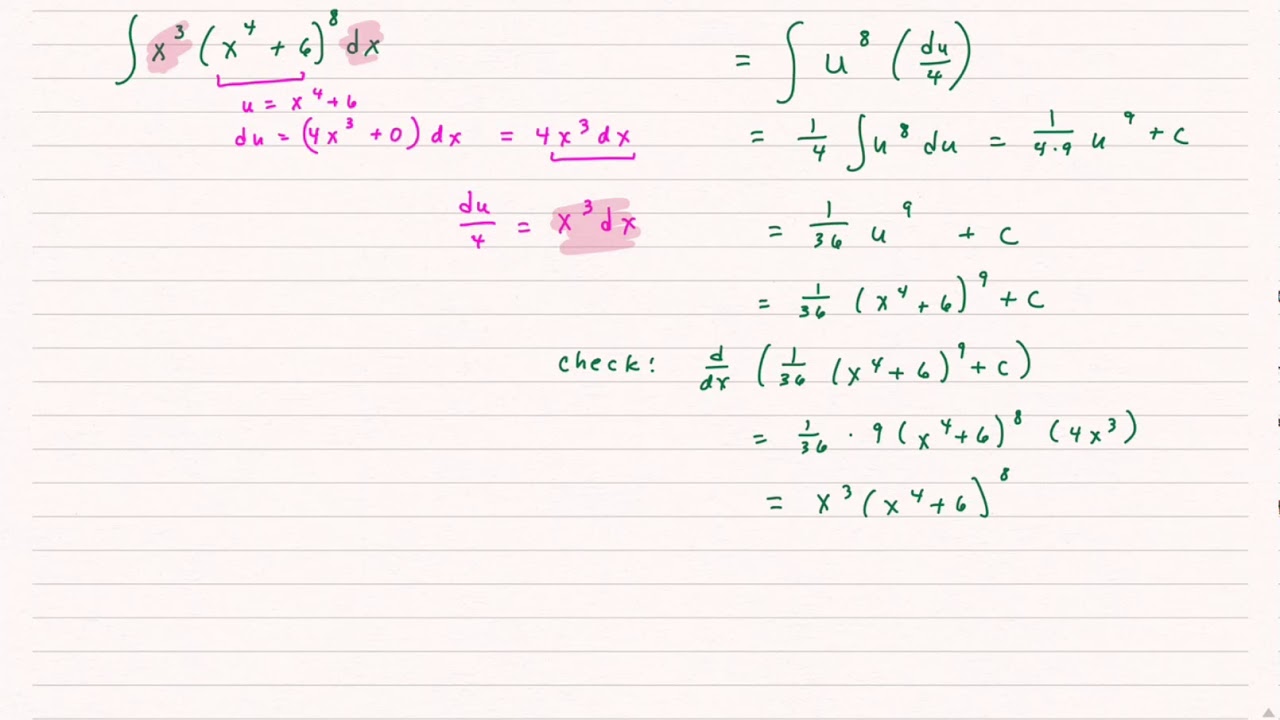 ∫ x³ (x⁴ + 6)⁸ dx
u = x⁴ + 6
du = (4x³ + 0) dx = 4x³ dx
du/4 = x³ dx
= ∫ u⁸ (du/4)
= 1/4 ∫ u⁸ du = 1/(4·9) u⁹ + C
= 1/36 u⁹ + C
= 1/36 (x⁴ + 6)⁹ + C
check: d/dx (1/36 (x⁴ + 6)⁹ + C)
= 1/36 · 9 (x⁴ + 6)⁸ (4x³)
= x³ (x⁴ + 6)⁸